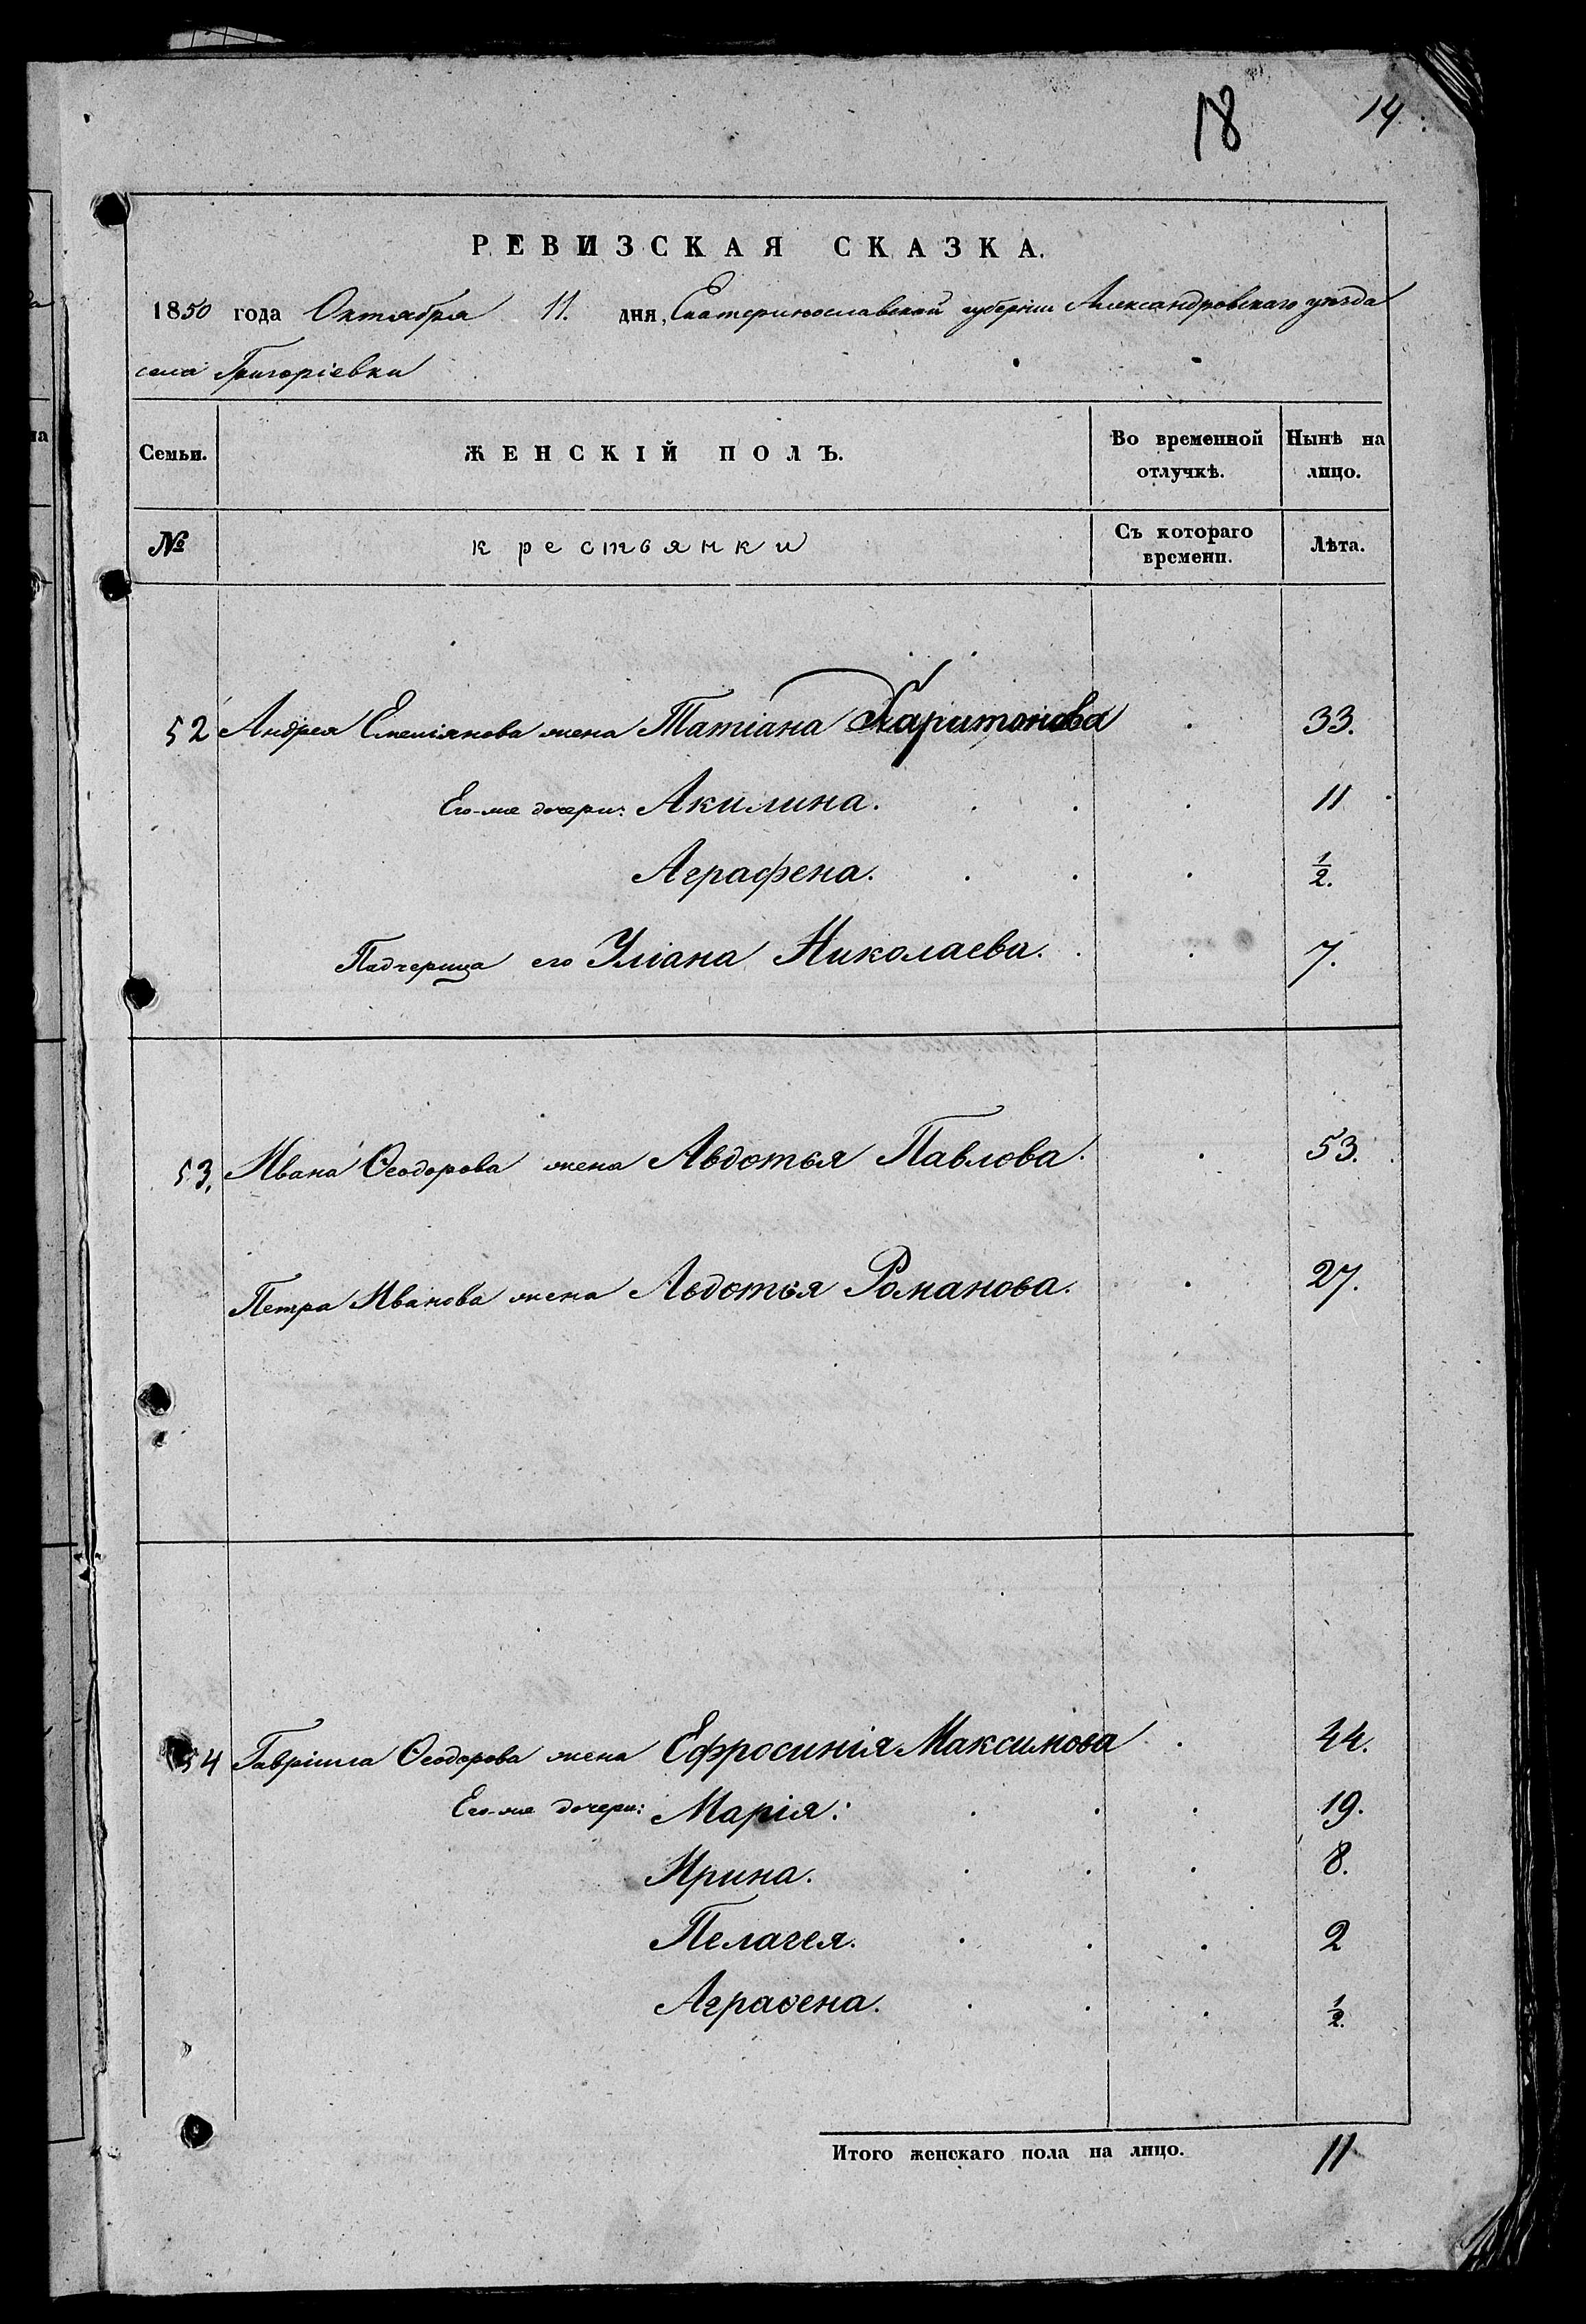 18 14
РЕВИЗСКАЯ СКАЗКА.
1850 года Октября 11. дня, Екатеринославской губерніи Александровскаго уѣзда
села Григоріевки
Семьи. ЖЕНСКІЙ ПОЛЪ. Во временной отлучкѣ. Нынѣ на лицо.
№ крестьянки Съ котораго времени. Лѣта.
52 Андрея Емеліянова жена Татіана Харитонова 33.
Его-же дочери: Акилина. 11
Аграфена. 1/2.
Падчерица его Уліана Николаева. 7.
53, Ивана Ѳеодорова жена Авдотья Павлова. 53.
Петра Иванова жена Авдотья Романова. 27.
54 Гавріила Ѳеодорова жена Ефросинія Максимова 44.
Его-же дочери: Марія: 19.
Ирина. 8.
Пелагея. 2
Аграѳена. 1/2.
Итого женскаго пола на лицо. 11